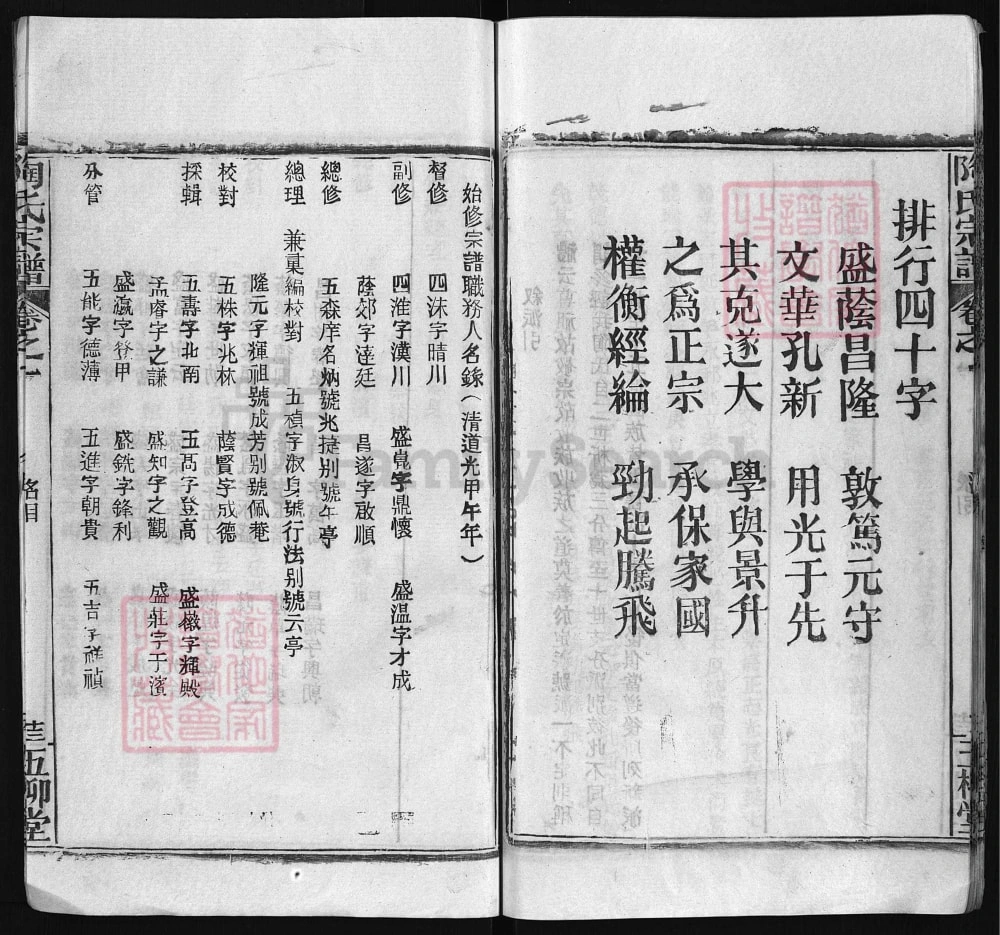 排行四十字
盛蔭昌隆 敦篤元守
文華孔新 用光于先
其克遂大 學與景升
之爲正宗 承保家國
權衡經綸 勁起騰飛
陶氏宗譜 卷之一
五柳堂
始修宗譜職務人名錄(清道光甲午年)
督修 四洙字晴川
副修 四淮字漢川 盛嵬字鼎懷 盛温字才成
蔭郊字達廷 昌遂字啟順
總修 五森庠名炳號兆揵别號午亭
總理 兼稟編校對 五禎字淑身號行法别號云亭
隆元字輝祖號成芳别號佩菴
校對 五株字兆林 蔭賢字成德
採輯 五壽字北南 五髙字登高 盛徵字輝殿
孟睿字之謙 盛知字之觀 盛莊字于濱
盛瀛字登甲 盛銑字鋒利
分管 五能字德溥 五進字朝貴 五吉字祥禎
陶氏宗譜 卷之一 名目
五柳堂
FamilySearch